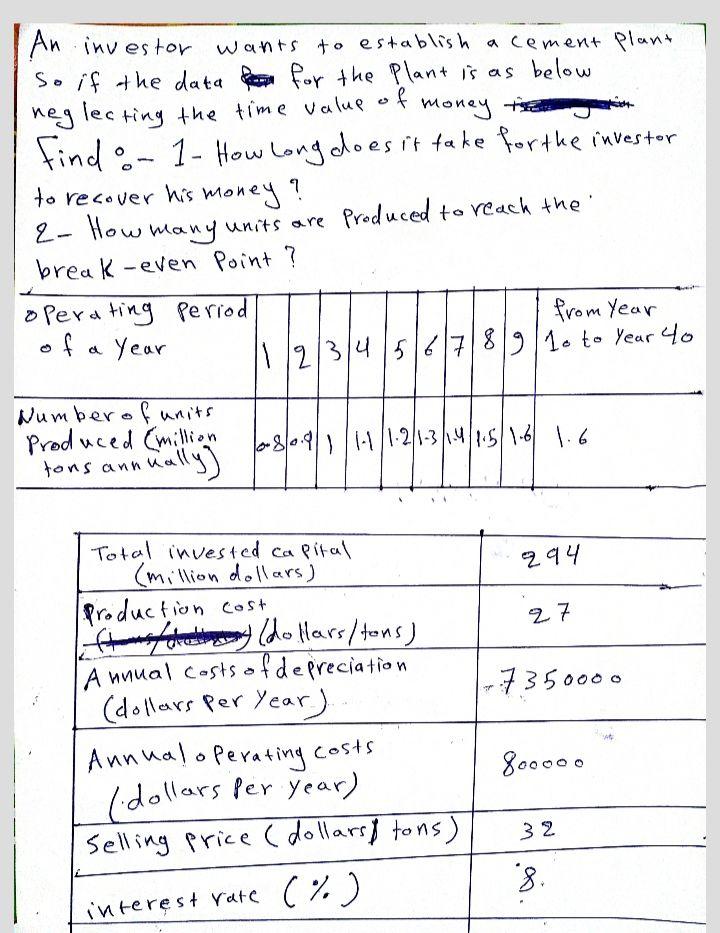 An investor wants to establish a cement plant
So if the data for the Plant is as below
neglecting the time value of money
Find :- 1- How Long does it take for the investor
to recover his money ?
2- How many units are Produced to reach the
break-even Point ?
operating Period of a Year 1 2 3 4 5 6 7 8 9 from Year 10 to Year 40
Number of units Produced (million tons annually) 0.8 0.9 1 1.1 1.2 1.3 1.4 1.5 1.6 1.6
Total invested capital (million dollars) 294
Production cost (dollars/tons) 27
Annual costs of depreciation (dollars per Year) 7350000
Annual operating costs (dollars per year) 800000
Selling price (dollars/tons) 32
interest rate (%) 8.